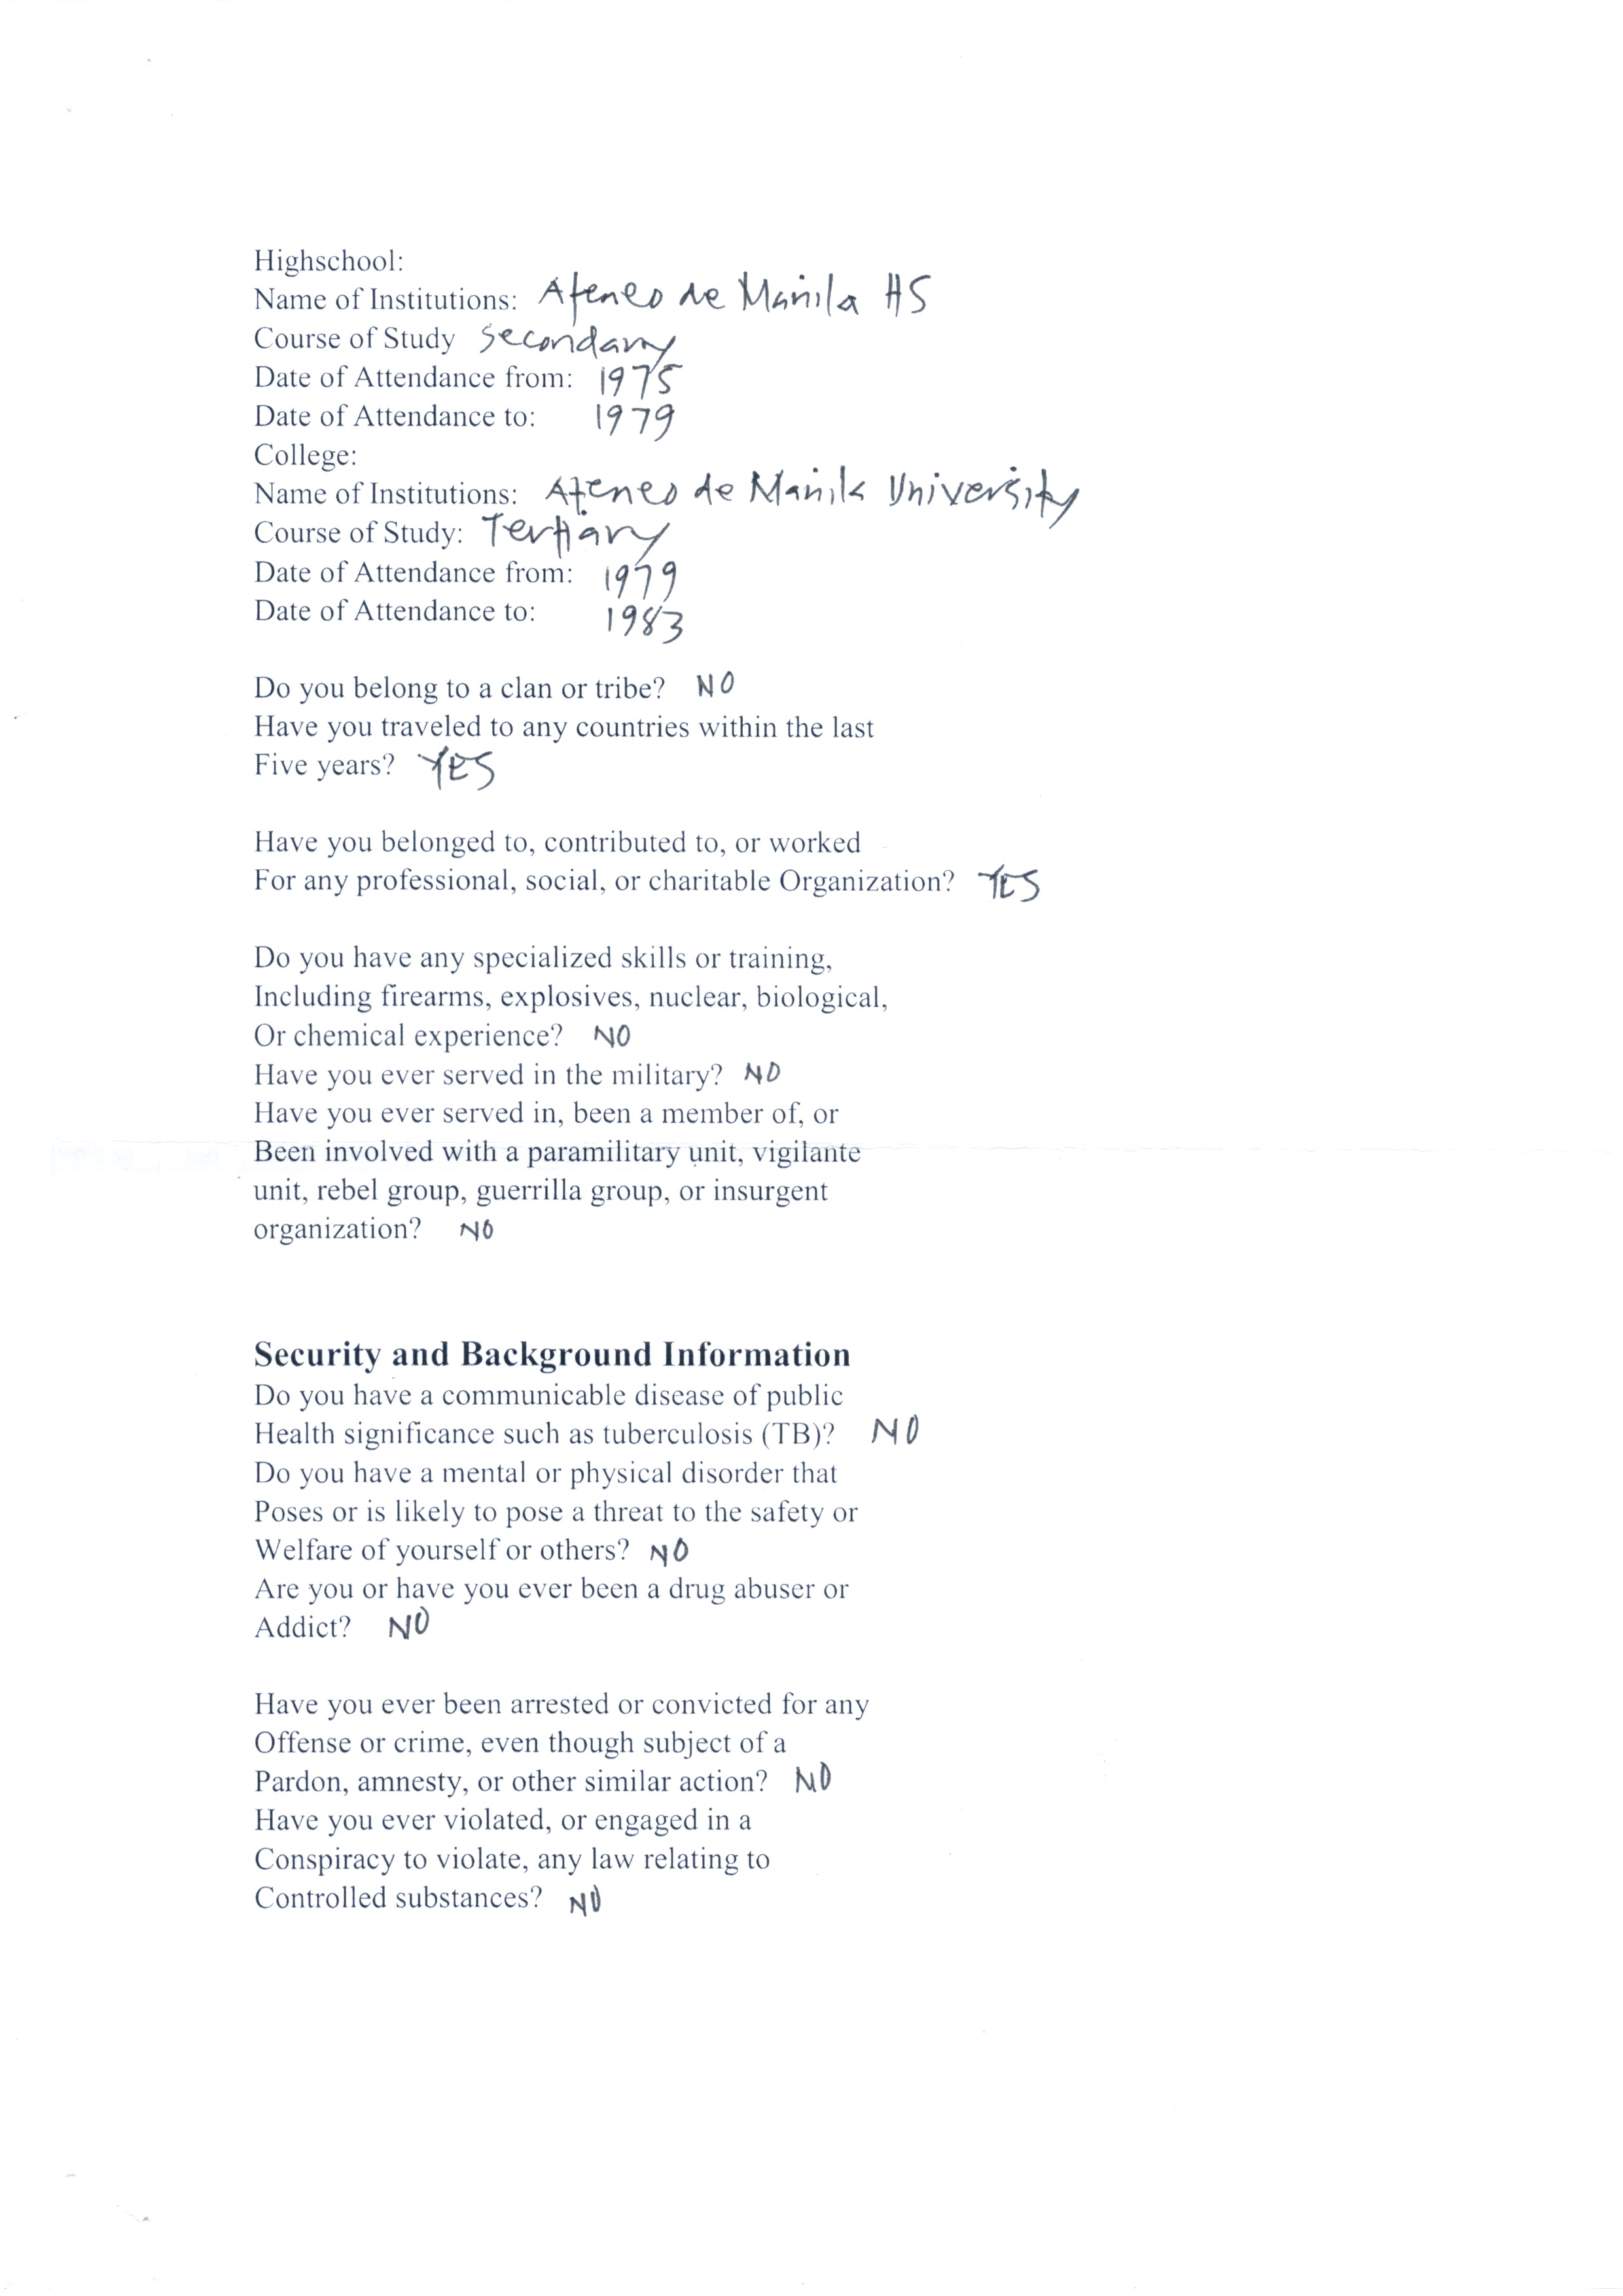 Highschool:
Name of Institutions: Ateneo de Manila HS
Course of Study Secondary
Date of Attendance from: 1975
Date of Attendance to: 1979
College:
Name of Institutions: Ateneo de Manila University
Course of Study: Tertiary
Date of Attendance from: 1979
Date of Attendance to: 1983
Do you belong to a clan or tribe? NO
Have you traveled to any countries within the last
Five years? YES
Have you belonged to, contributed to, or worked
For any professional, social, or charitable Organization? YES
Do you have any specialized skills or training,
Including firearms, explosives, nuclear, biological,
Or chemical experience? NO
Have you ever served in the military? NO
Have you ever served in, been a member of, or
Been involved with a paramilitary unit, vigilante
unit, rebel group, guerrilla group, or insurgent
organization? NO
Security and Background Information
Do you have a communicable disease of public
Health significance such as tuberculosis (TB)? NO
Do you have a mental or physical disorder that
Poses or is likely to pose a threat to the safety or
Welfare of yourself or others? NO
Are you or have you ever been a drug abuser or
Addict? NO
Have you ever been arrested or convicted for any
Offense or crime, even though subject of a
Pardon, amnesty, or other similar action? NO
Have you ever violated, or engaged in a
Conspiracy to violate, any law relating to
Controlled substances? NO